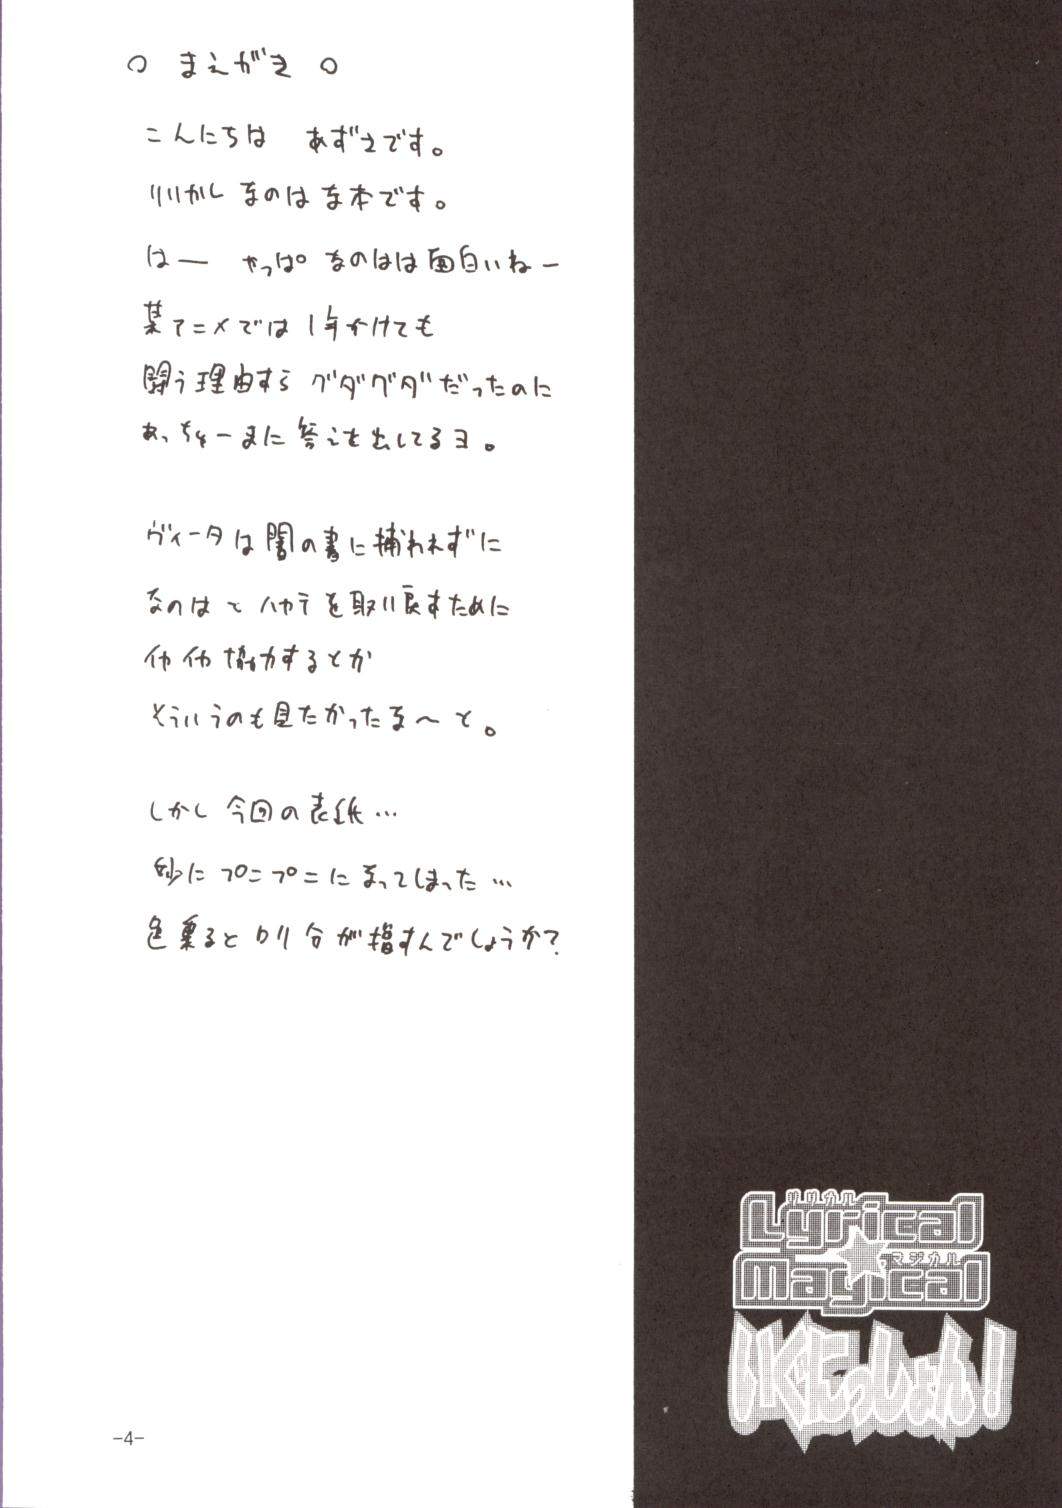 ○ まえがき ○
こんにちは あずさです。
リリカル なのは な本です。
はー やっぱ なのはは面白いねー
某アニメでは 1年かけても
闘う理由すら グダグダだったのに
あっちゅーまに 答えを出してるヨ。
ヴィータは闇の書に捕われずに
なのはと ハヤテを取り戻すために
イヤイヤ協力するとか
そういうのも見たかったな〜と。
しかし 今回の表紙…
妙に プニプニになってしまった…
色塗ると ロリ分が増すんでしょうか?
リリカル
Lyrical
マジカル
Magical
-4-